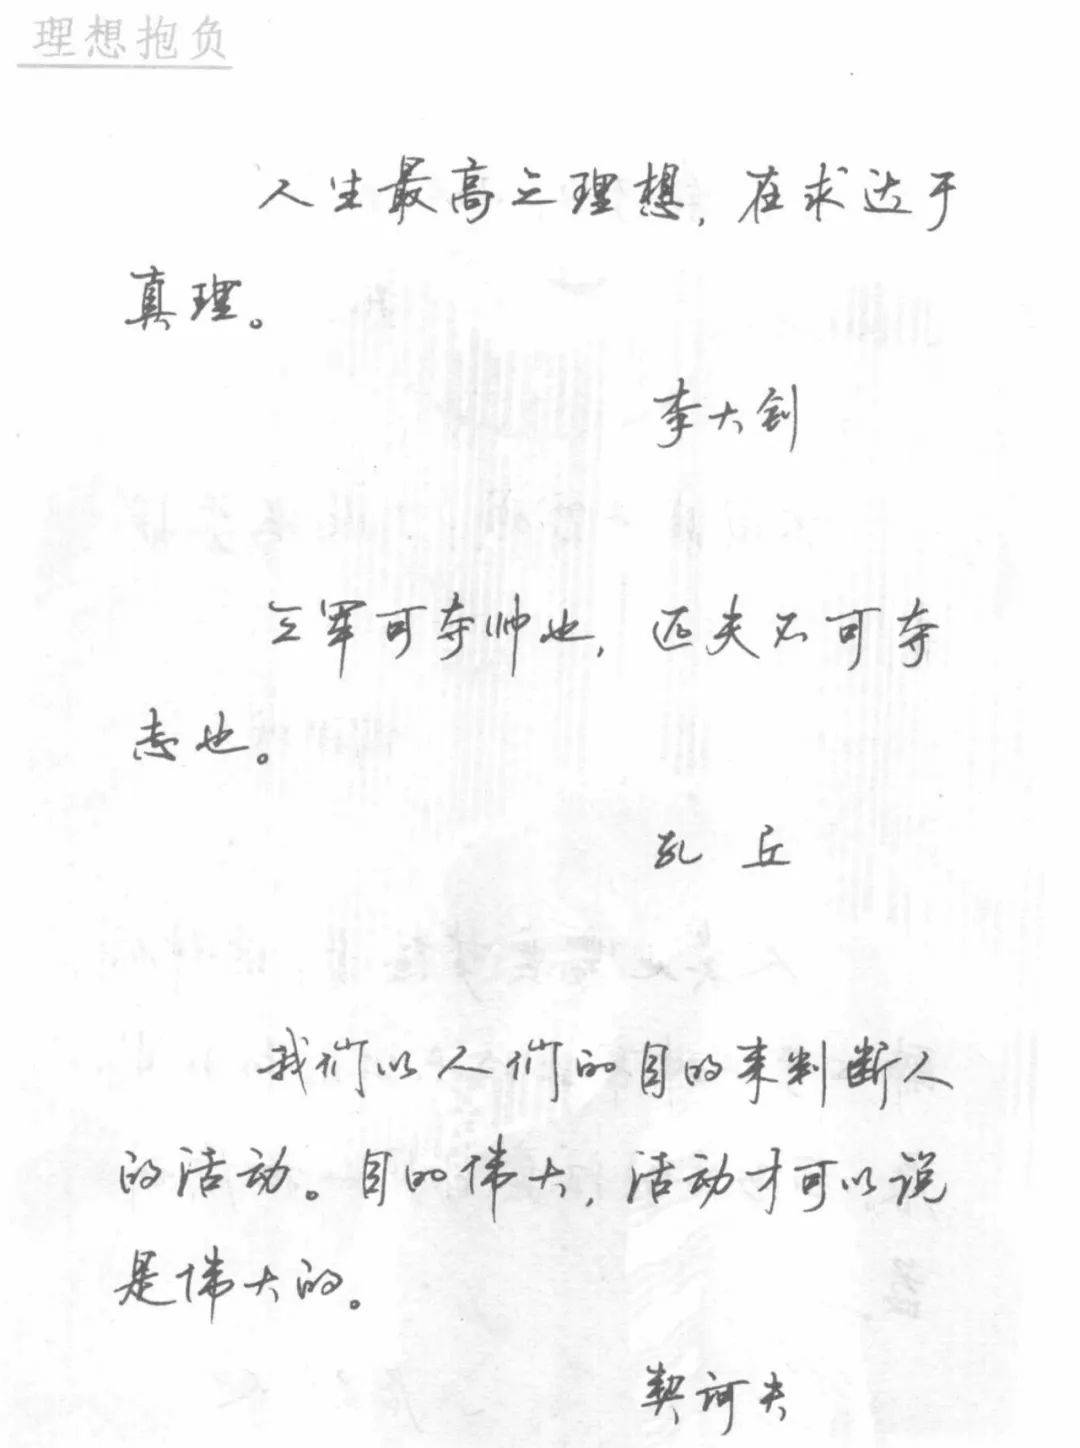 理想抱负
人生最高之理想，在求达于
真理。
李大钊
三军可夺帅也，匹夫不可夺
志也。
孔丘
我们以人们的目的来判断人
的活动。目的伟大，活动才可以说
是伟大的。
契诃夫